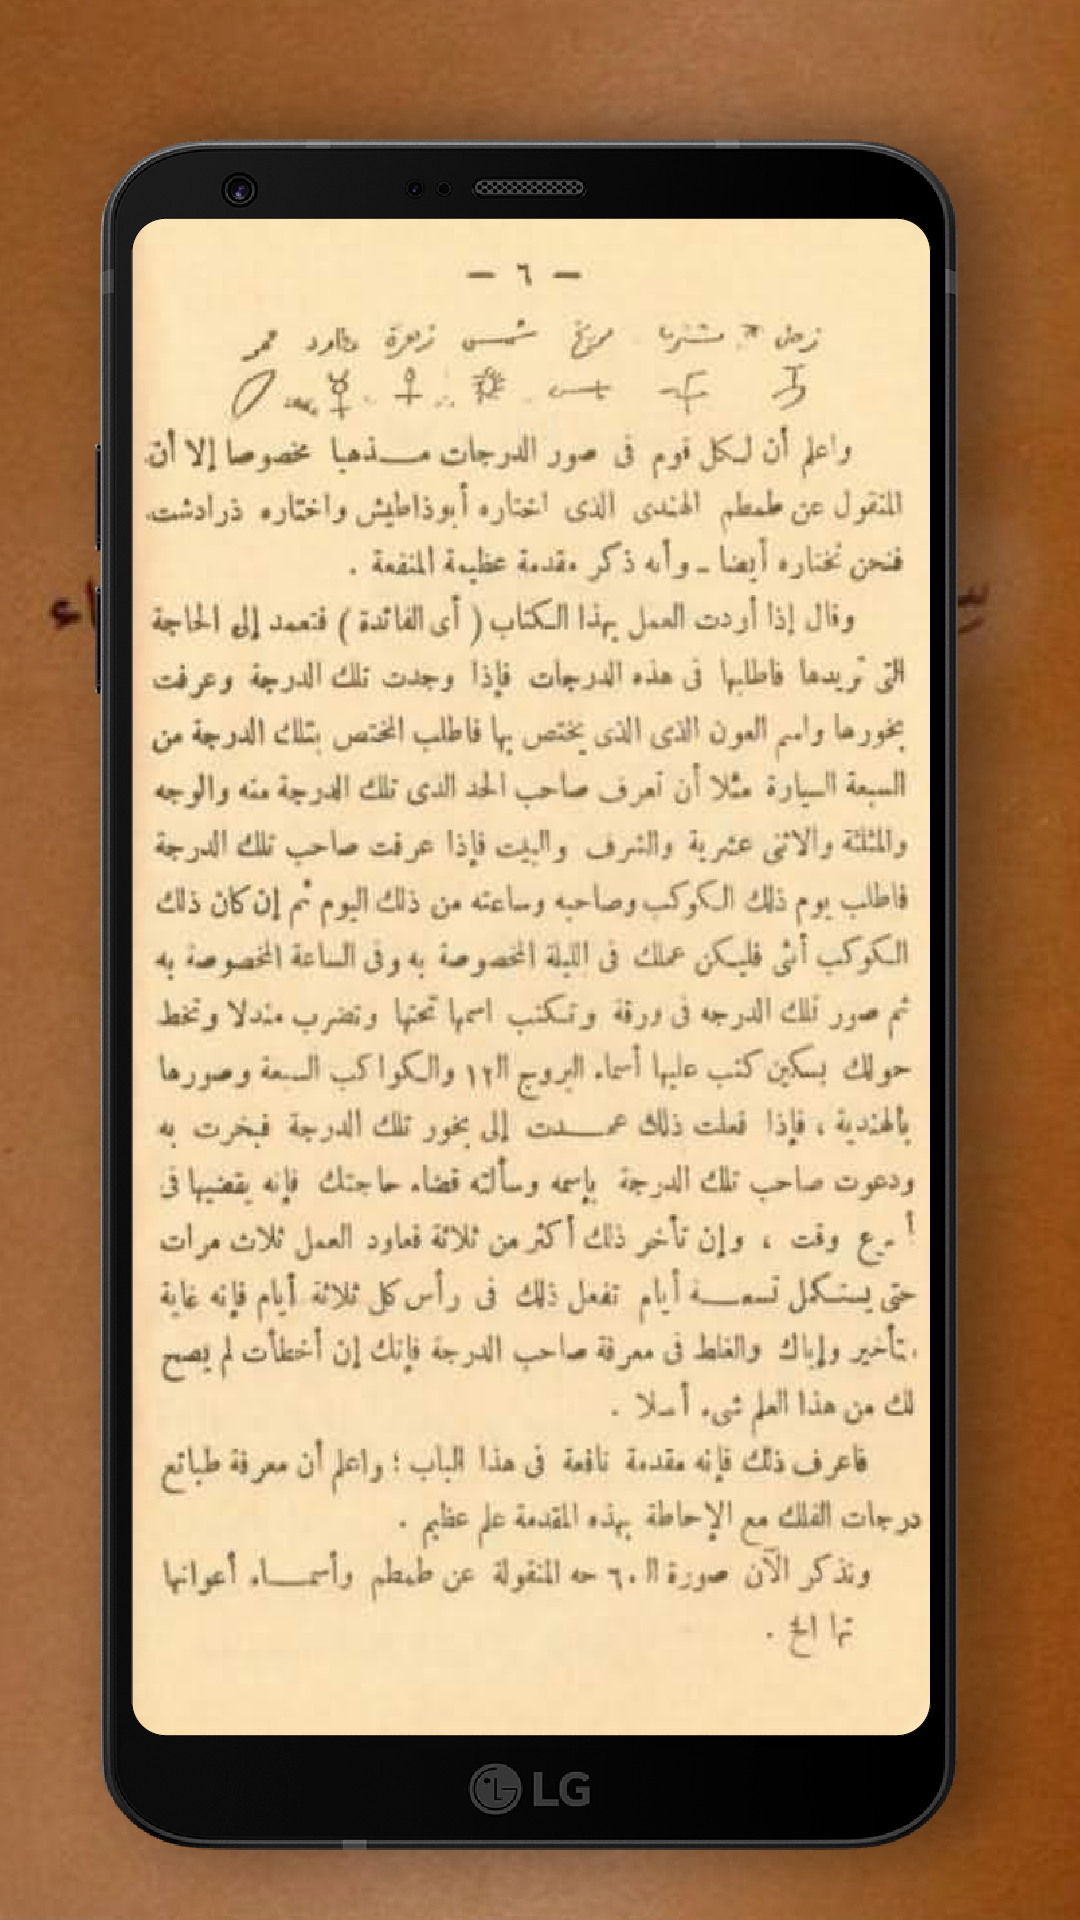 — ٦ —
زحل مشترى مريخ شمس زهرة عطارد قمر
واعلم أن لكل قوم فى صور الدرجات مــذهبا مخصوصا إلا أن
المنقول عن طمطم الهندى الذى اختاره أبوذاطيش واختاره ذرادشت
فنحن نختاره أيضا ـ وأنه ذكر مقدمة عظيمة المنفعة .
وقال إذا أردت العمل بهذا الكتاب ( أى الفائدة ) فتعمد إلى الحاجة
التى تريدها فاطلبها فى هذه الدرجات فإذا وجدت تلك الدرجة وعرفت
بخورها واسم العون الذى الذى يختص بها فاطلب المختص بتلك الدرجة من
السبعة السيارة مثلا أن تعرف صاحب الحد الذى تلك الدرجة منه والوجه
والمثلثة والاثنى عشرية والشرف والبيت فإذا عرفت صاحب تلك الدرجة
فاطلب يوم ذلك الكوكب وصاحبه وساعته من ذلك اليوم ثم إن كان ذلك
الكوكب أنثى فليكن عملك فى الليلة المخصوصة به وفى الساعة المخصوصة به
ثم صور تلك الدرجه فى ورقة وتكتب اسمها تحتها وتضرب مندلا وتخط
حولك بسكين كتب عليها أسماء البروج ال١٢ والكواكب السبعة وصورها
بالهندية ، فإذا فعلت ذلك عمــدت إلى بخور تلك الدرجة فبخرت به
ودعوت صاحب تلك الدرجة بإسمه وسألته قضاء حاجتك فإنه يقضيها فى
أسرع وقت ، وإن تأخر ذلك أكثر من ثلاثة فعاود العمل ثلاث مرات
حتى يستكمل تسعــة أيام تفعل ذلك فى رأس كل ثلاثة أيام فإنه غاية
تأخير وإياك والغلط فى معرفة صاحب الدرجة فإنك إن أخطأت لم يصح
لك من هذا العلم شىء أصلا .
فاعرف ذلك فإنه مقدمة نافعة فى هذا الباب ؛ واعلم أن معرفة طبائع
درجات الفلك مع الإحاطة بهذه المقدمة علم عظيم .
ونذكر الآن صورة ال ٦٠ حه المنقولة عن طمطم وأسمــاء أعوانها
تها الخ .
LG